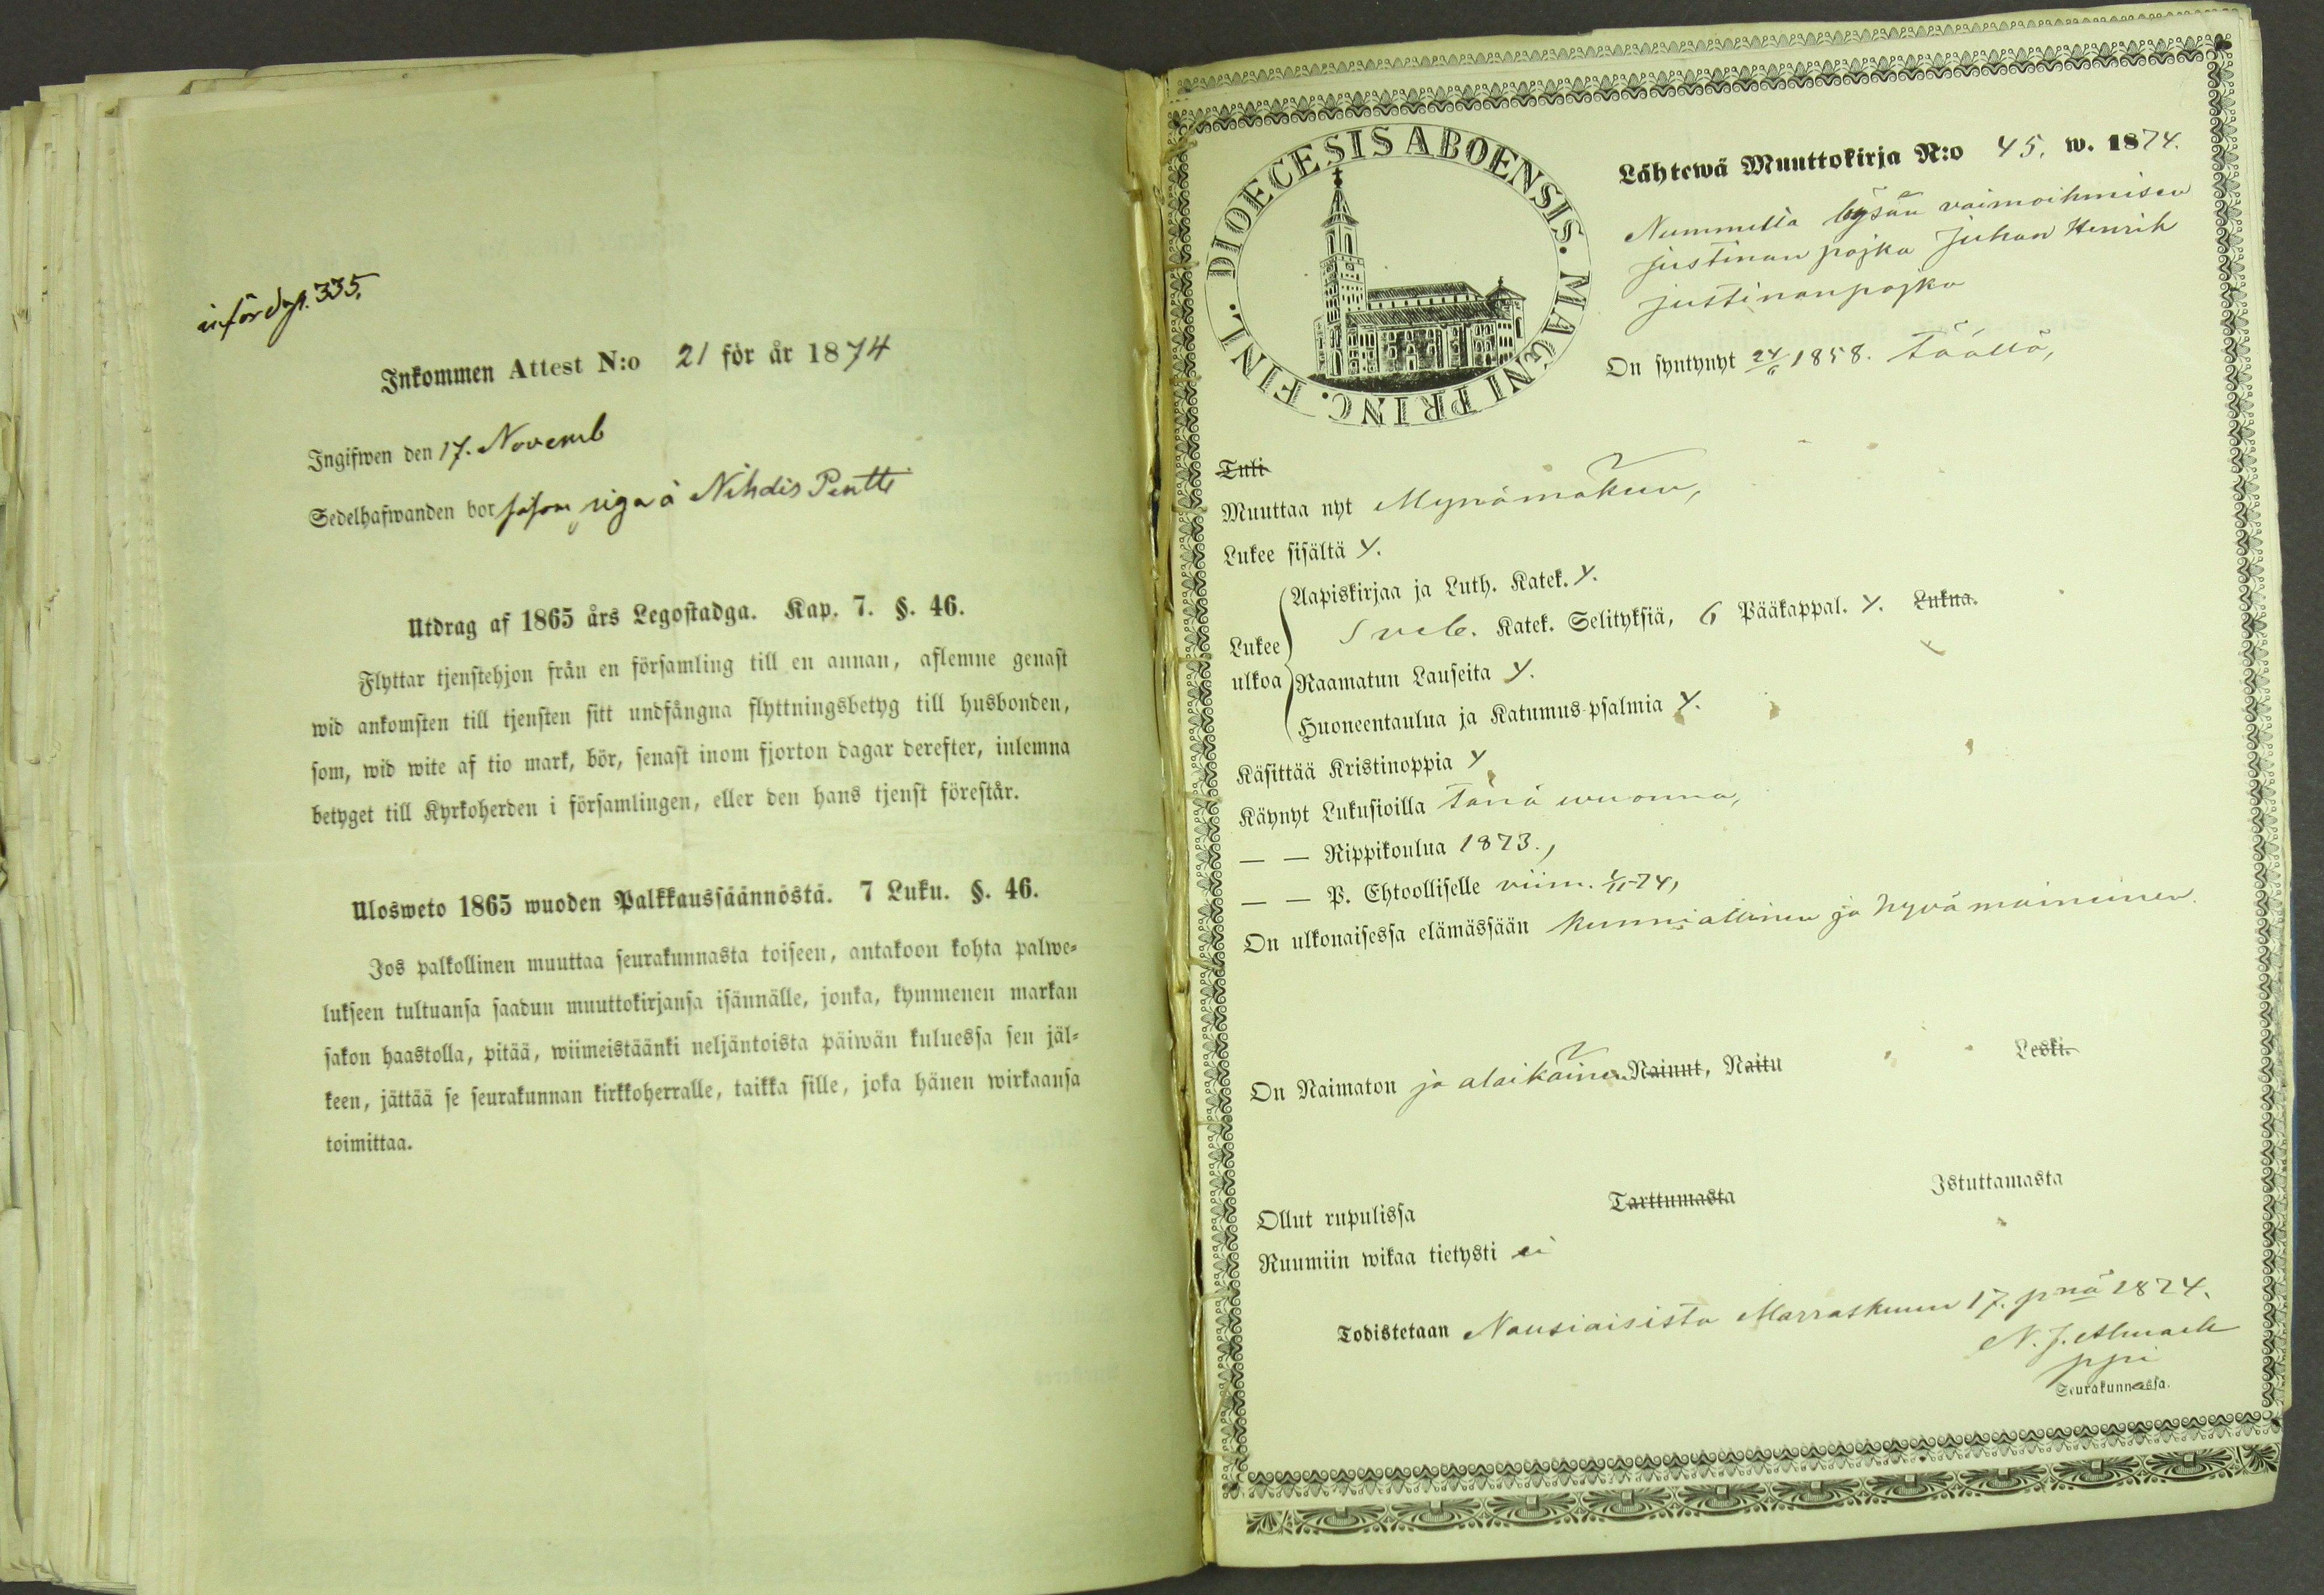 införd p. 335.
Inkommen Attest N:o 21 för år 1874
Ingifwen den 17. Novemb
Sedelhafwanden bor såsom piga å Nihdis Pentti
Utdrag af 1865 års Legostadga. Kap. 7. §. 46.
Flyttar tjenstehjon från en församling till en annan, aflemne genast
wid ankomsten till tjensten sitt undfångna flyttningsbetyg till husbonden,
som, wid wite af tio mark, bör, senast inom fjorton dagar derefter, inlemna
betyget till Kyrkoherden i församlingen, eller den hans tjenst förestår.
Ulosweto 1865 wuoden Palkkaussäännöstä. 7 Luku. §. 46.
Jos palkollinen muuttaa seurakunnasta toiseen, antakoon kohta palwe-
lukseen tultuansa saadun muuttokirjansa isännälle, jonka, kymmenen markan
sakon haastolla, pitää, wiimeistäänki neljäntoista päiwän kuluessa sen jäl-
keen, jättää se seurakunnan kirkkoherralle, taikka sille, joka hänen wirkaansa
toimittaa.
DIOECESIS ABOENSIS. MAGNI PRINC. FINL.
Lähtewä Muuttokirja N:o 45. w. 1874.
Nummilla vaimoihmisen
Justinan pojka Juhan Henrik
Justinanpojka
On syntynyt 24/6 1858. täällä,
Tuli
Muuttaa nyt Mynämäkeen,
Lukee sisältä y.
Aapiskirjaa ja Luth. Katek. y.
Sveb. Katek. Selityksiä, 6 Pääkappal. y. Lukua.
Lukee
ulkoa
Raamatun Lauseita y.
Huoneentaulua ja Katumus-psalmia y.
Käsittää Kristinoppia y
Käynyt Lukusioilla tänä wuonna,
— — Rippikoulua 1873.,
— — P. Ehtoolliselle viim. 74,
On ulkonaisessa elämässään kunniallinen ja hyvämaineinen.
On Naimaton ja alaikäinen Nainut, Naitu Leski.
Ollut rupulissa Tarttumasta Istuttamasta
Ruumiin wikaa tietysti ei
Todistetaan Nousiaisista Marraskuun 17. pnä 1874.
N. J.
ppi
Seurakunnassa.